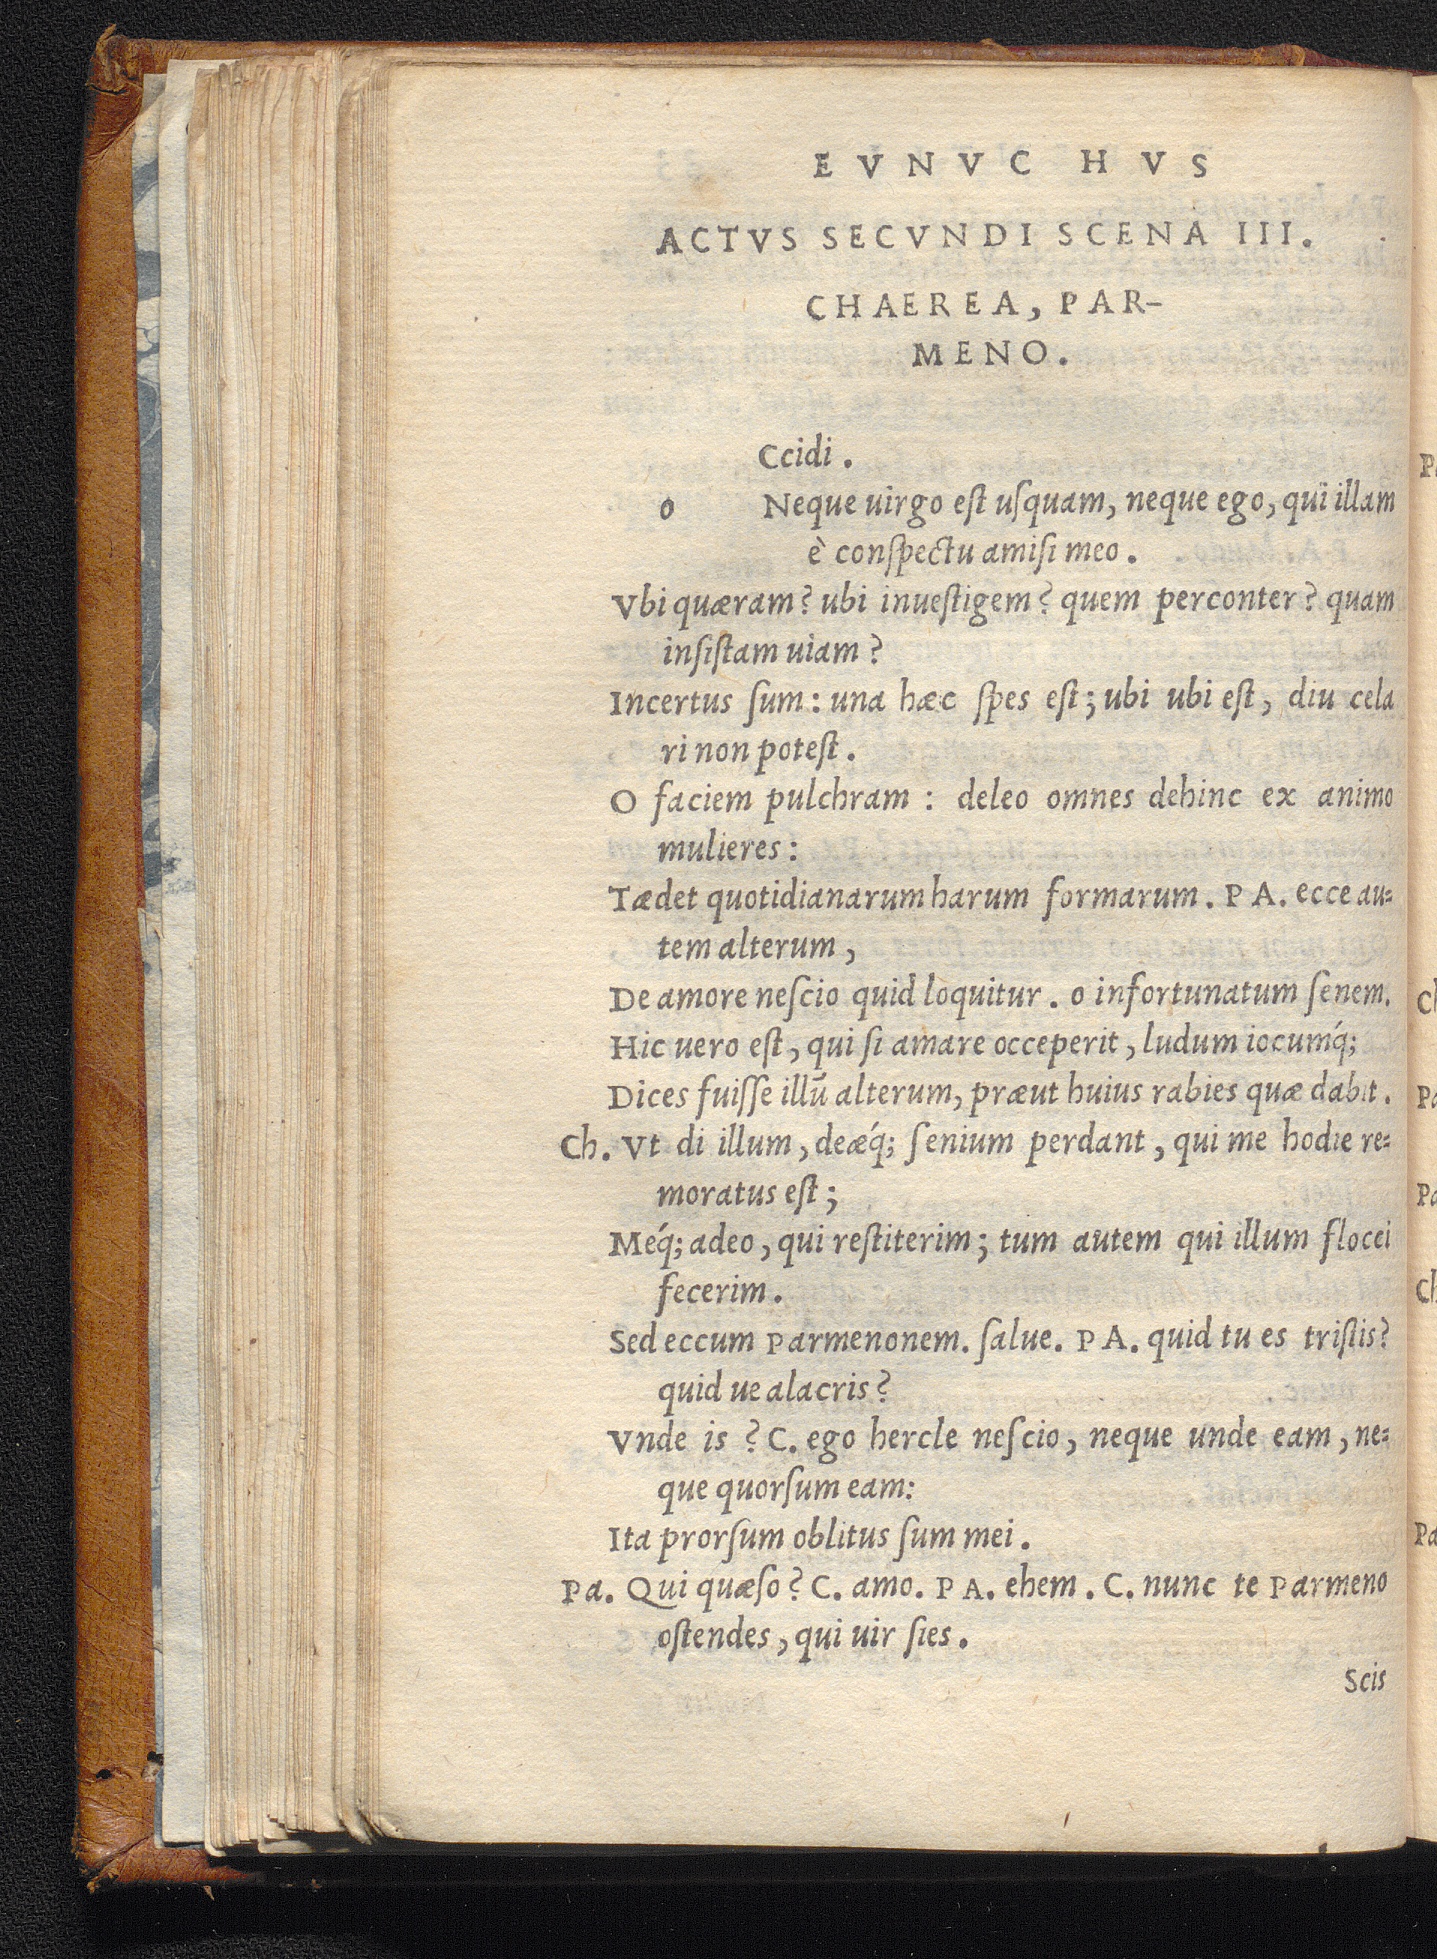 EVNVCHVS
ACTVS SECVNDI SCENA III.
CHAEREA, PAR-
MENO.
Ccidi.
o Neque uirgo eſt uſquam, neque ego, qui illam
è conſpectu amiſi meo.
Vbi quæram? ubi inueſtigem? quem perconter? quam
inſiſtam uiam?
Incertus ſum: una hæc ſpes eſt; ubi ubi eſt, diu cela
ri non poteſt.
O faciem pulchram: deleo omnes dehinc ex animo
mulieres:
Tædet quotidianarum harum formarum. PA. ecce au-
tem alterum,
De amore neſcio quid loquitur. o infortunatum ſenem.
Hic uero eſt, qui ſi amare occeperit, ludum iocumq́;
Dices fuiſſe illū alterum, præut huius rabies quæ dabit.
Ch. Vt di illum, deæq́; ſenium perdant, qui me hodie re-
moratus eſt;
Meq́; adeo, qui reſtiterim; tum autem qui illum flocci
fecerim.
Sed eccum Parmenonem. ſalue. PA. quid tu es triſtis?
quid ue alacris?
Vnde is? C. ego hercle neſcio, neque unde eam, ne-
que quorſum eam:
Ita prorſum oblitus ſum mei.
Pa. Qui quæſo? C. amo. PA. ehem. C. nunc te Parmeno
oſtendes, qui uir ſies.
Scis